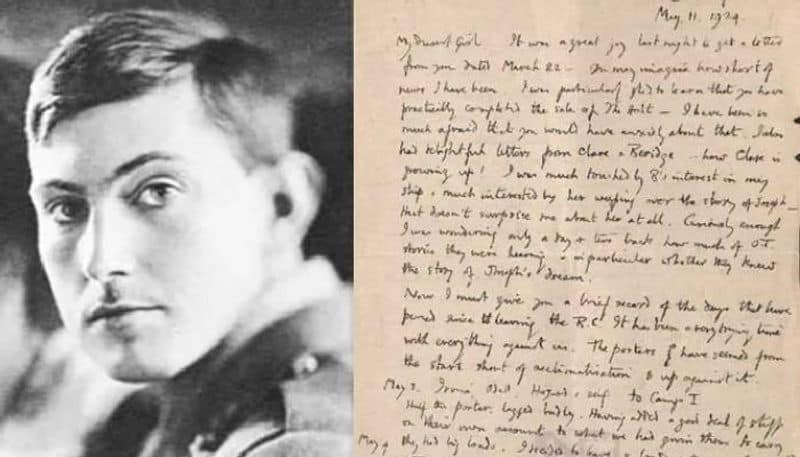 May. 11. 1924.
My dearest Girl It was a great joy last night to get a letter
from you dated March 22 — You may imagine how short of
news I have been. I was particularly glad to learn that you have
practically completed the sale of The Holt — I have been so
much afraid that you would have anxiety about that. I also
had delightful letters from Clare & Beridge — how Clare is
growing up! I was much touched by B's interest in my
ship & much interested by her weeping over the story of Joseph —
that doesn't surprise me about her at all. Curiously enough
I was wondering only a day or two back how much of O.T.
stories they were hearing & in particular whether they knew
the story of Joseph's dream.
Now I must give you a brief record of the days that have
passed since leaving the B.C. It has been a very trying time
with everything against us. The porters have seemed from
the start short of acclimatisation & up against it.
May 3. Irvine Odell, Hazard & self to Camp I
Half the porters lagged badly. Having added a good deal of stuff
on their own account to what we had given them to carry
May 4 they had big loads. I decided to leave